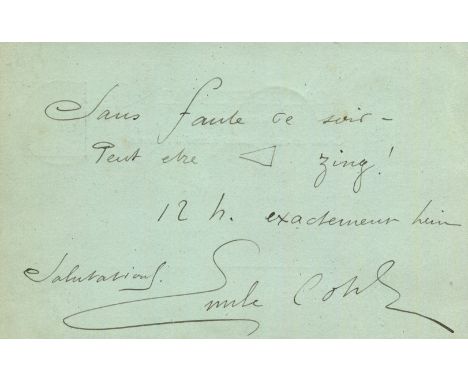 Sans faute ce soir –
Peut etre zing!
12 h. exactement hein
Salutations.
Emile Cohl